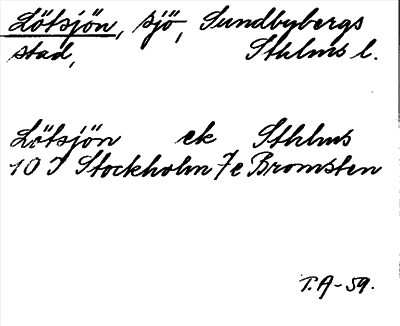 Lötsjön, sjö, Sundbybergs
stad, Sthlms l.
Lötsjön ek Sthlms
10 I Stockholm 7e Bromsten
T.A-59.